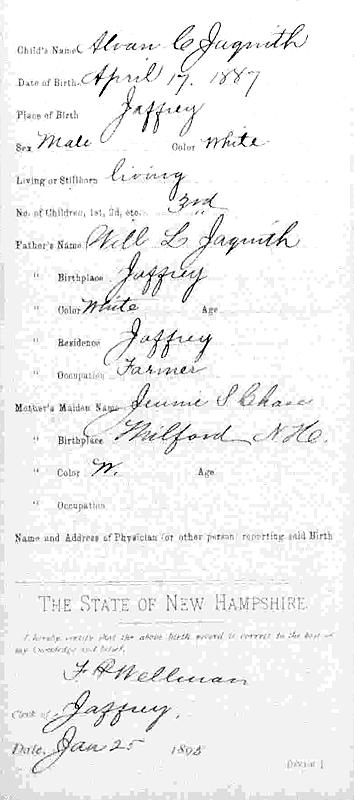 Child's Name Alvan C Jaquith
Date of Birth April 17. 1887
Place of Birth Jaffrey
Sex Male Color White
Living or Stillborn living
No. of Children, 1st, 2d, etc. 3rd
Father's Name Will L Jaquith
" Birthplace Jaffrey
" Color White Age
" Residence Jaffrey
" Occupation Farmer
Mother's Maiden Name Jennie S Chase
" Birthplace Milford N.H.
" Color W. Age
" Occupation
Name and Address of Physician (or other person) reporting said Birth
THE STATE OF NEW HAMPSHIRE.
I hereby certify that the above birth record is correct to the best of
my knowledge and belief.
Wellman
Clerk of Jaffrey.
Date, Jan 25